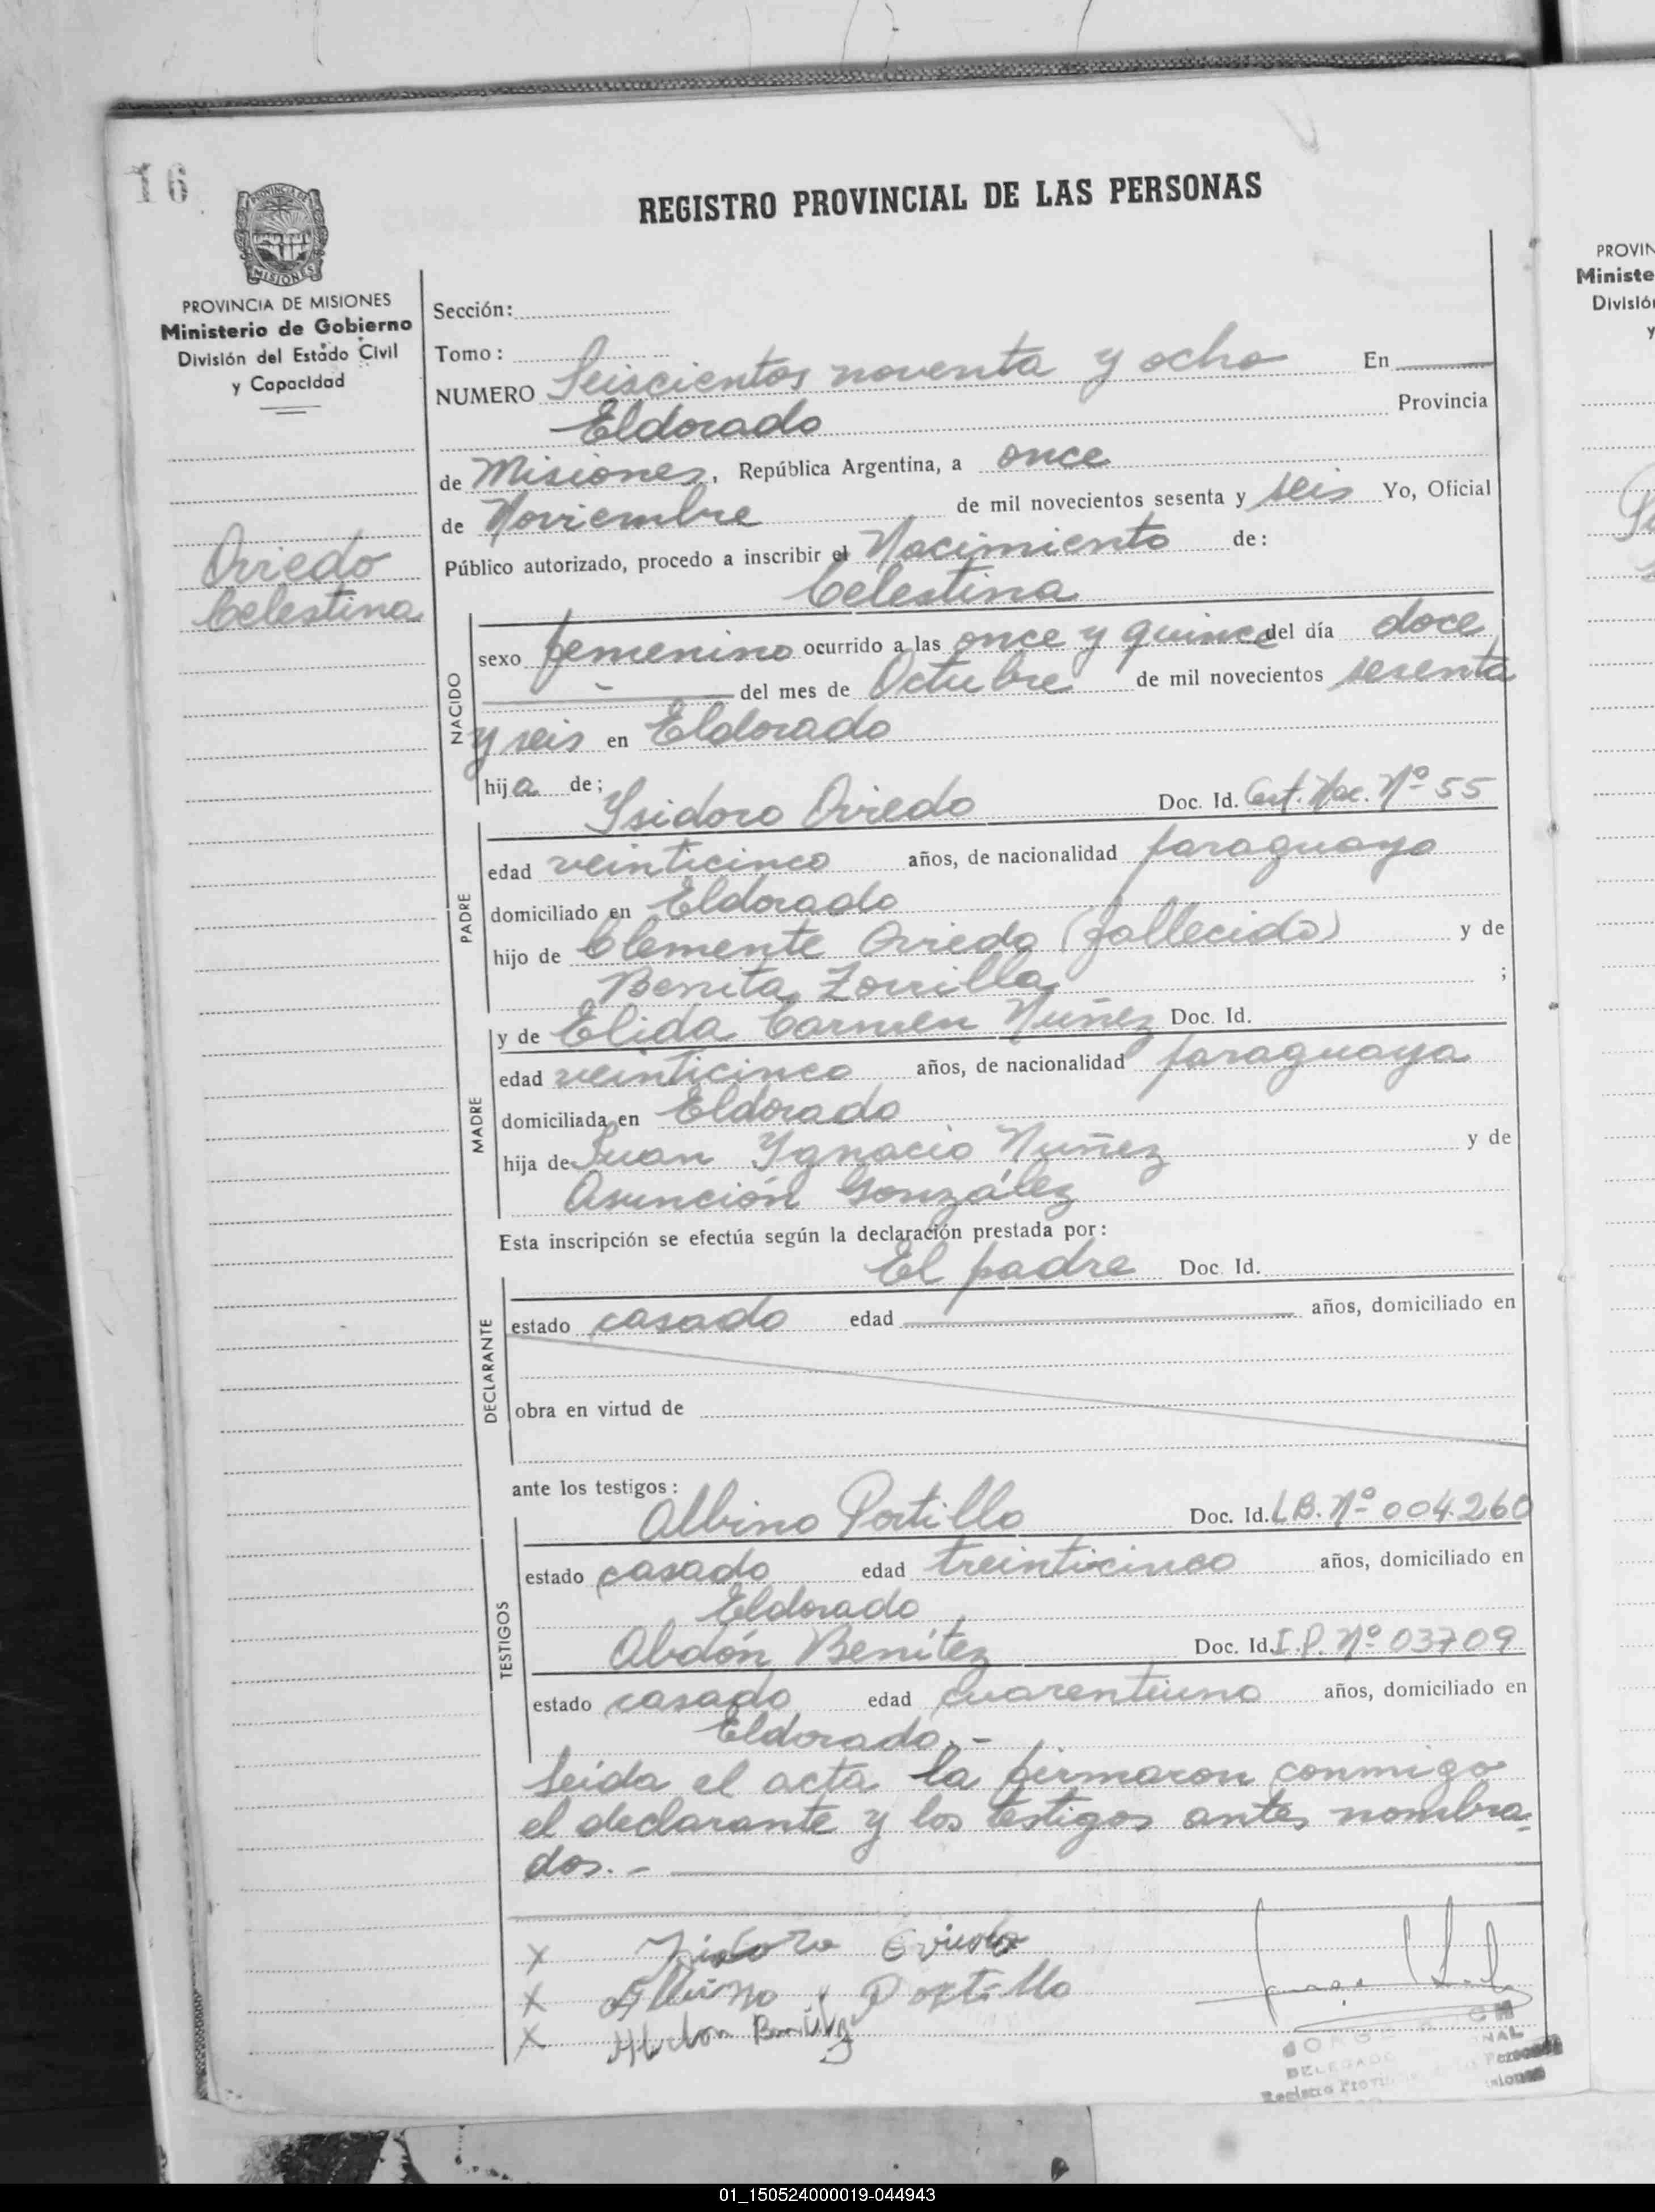 16
REGISTRO PROVINCIAL DE LAS PERSONAS
PROVINCIA DE MISIONES
Ministerio de Gobierno
División del Estado Civil
y Capacidad
Oviedo
Celestina
Sección:
Tomo:
NUMERO Seiscientos noventa y ocho En
Eldorado Provincia
de Misiones, República Argentina, a once
de Noviembre de mil novecientos sesenta y seis Yo, Oficial
Público autorizado, procedo a inscribir el Nacimiento de:
Celestina
NACIDO
sexo femenino ocurrido a las once y quince del día doce
del mes de Octubre de mil novecientos sesenta
y seis en Eldorado
hija de;
Isidoro Oviedo Doc. Id. Cert. Nac. Nº 55
PADRE
edad veinticinco años, de nacionalidad paraguayo
domiciliado en Eldorado
hijo de Clemente Oviedo (fallecido) y de
Benita Zorrilla ;
y de Elida Carmen Nuñez Doc. Id.
MADRE
edad veinticinco años, de nacionalidad paraguaya
domiciliada en Eldorado
hija de Juan Ygnacio Nuñez y de
Asunción González
Esta inscripción se efectúa según la declaración prestada por:
El padre Doc. Id.
DECLARANTE
estado casado edad años, domiciliado en
obra en virtud de
ante los testigos:
Albino Portillo Doc. Id. L.B. Nº 004.260
TESTIGOS
estado casado edad treinticinco años, domiciliado en
Eldorado
Abdón Benítez Doc. Id. I.P. Nº 03709
estado casado edad cuarentiuno años, domiciliado en
Eldorado.-
Leída el acta la firmaron conmigo
el declarante y los testigos antes nombra-
dos.-
X Isidoro Oviedo
X Albino Portillo
X Abdon Benitez
DELEGADO
Registro
PROVIN
Ministe
Divisió
y
01_150524000019-044943